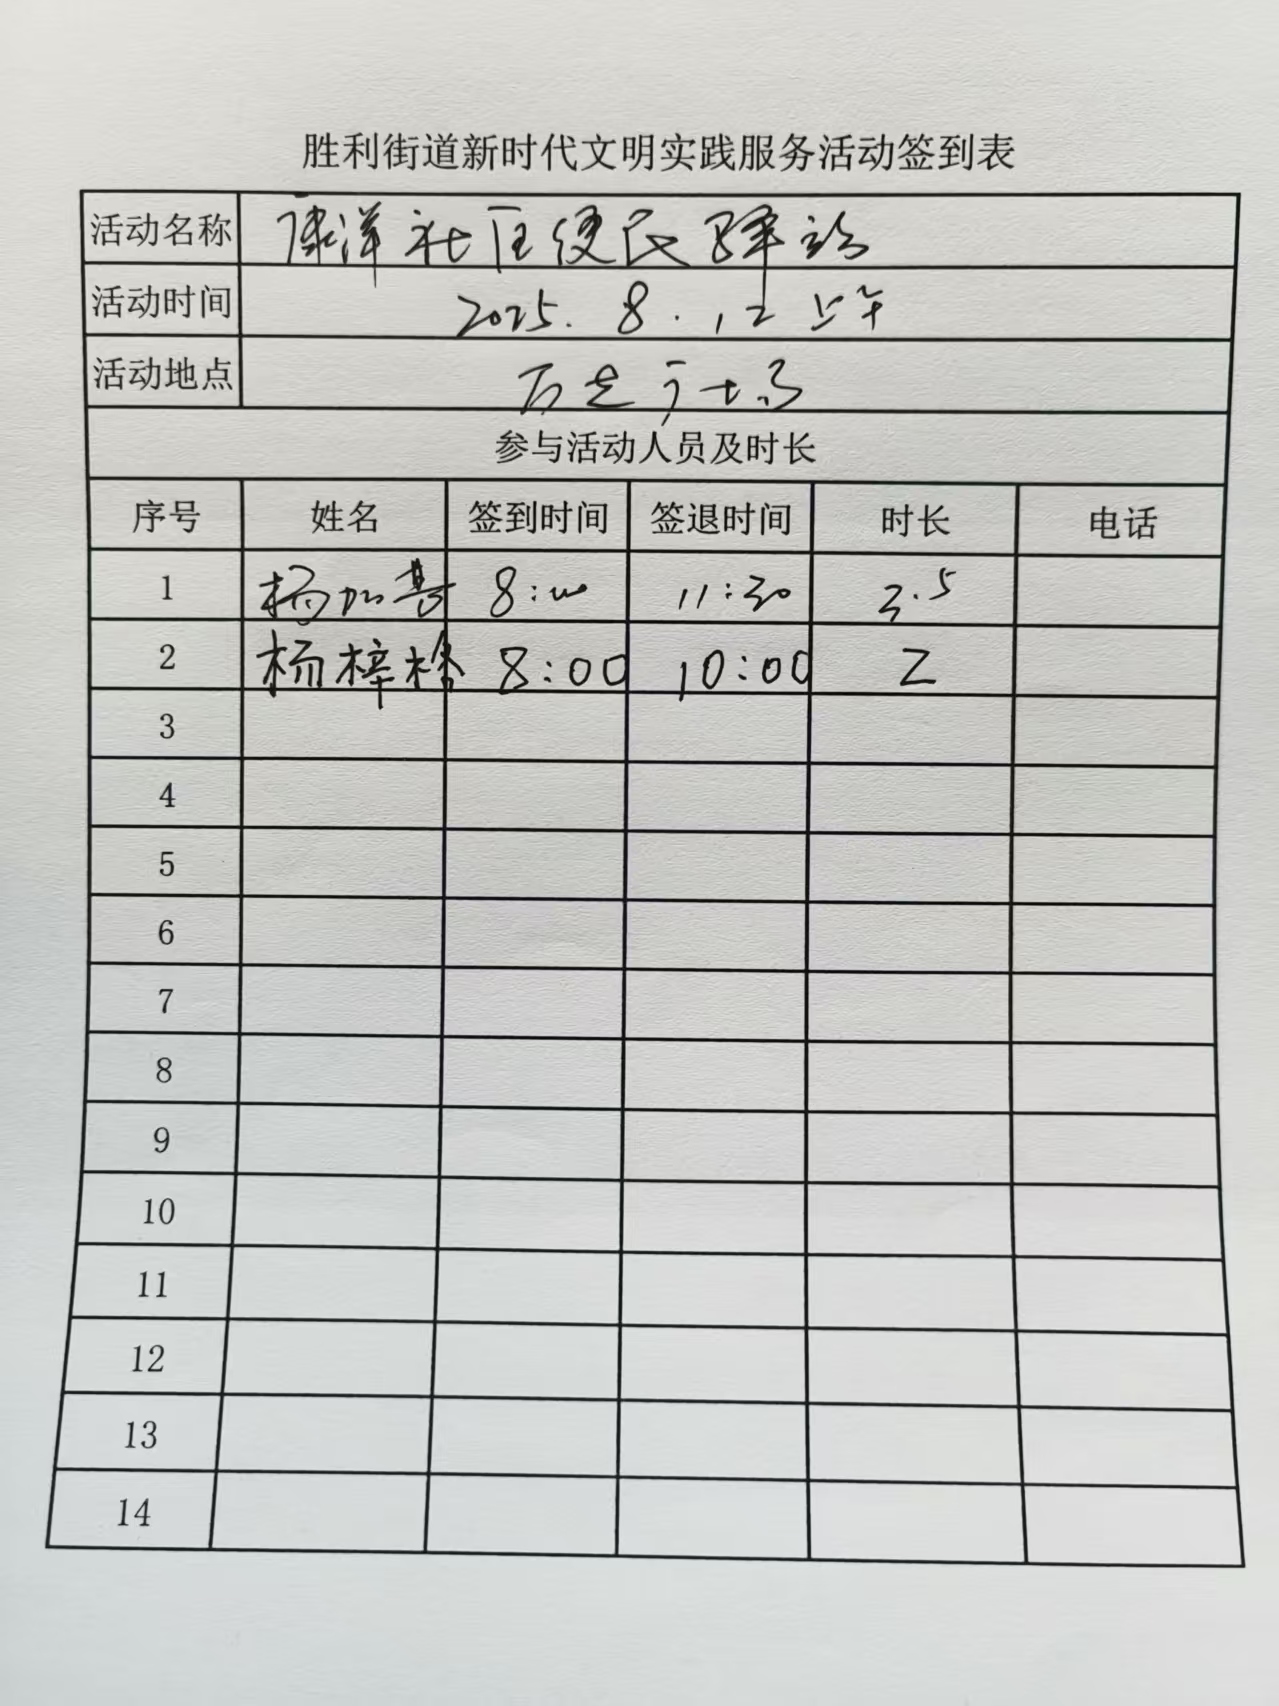 胜利街道新时代文明实践服务活动签到表
活动名称 康洋社区便民驿站
活动时间 2025.8.12上午
活动地点 广场
参与活动人员及时长
序号 姓名 签到时间 签退时间 时长 电话
1 杨加 8:00 11:30 3.5
2 杨梓 8:00 10:00 2
3
4
5
6
7
8
9
10
11
12
13
14